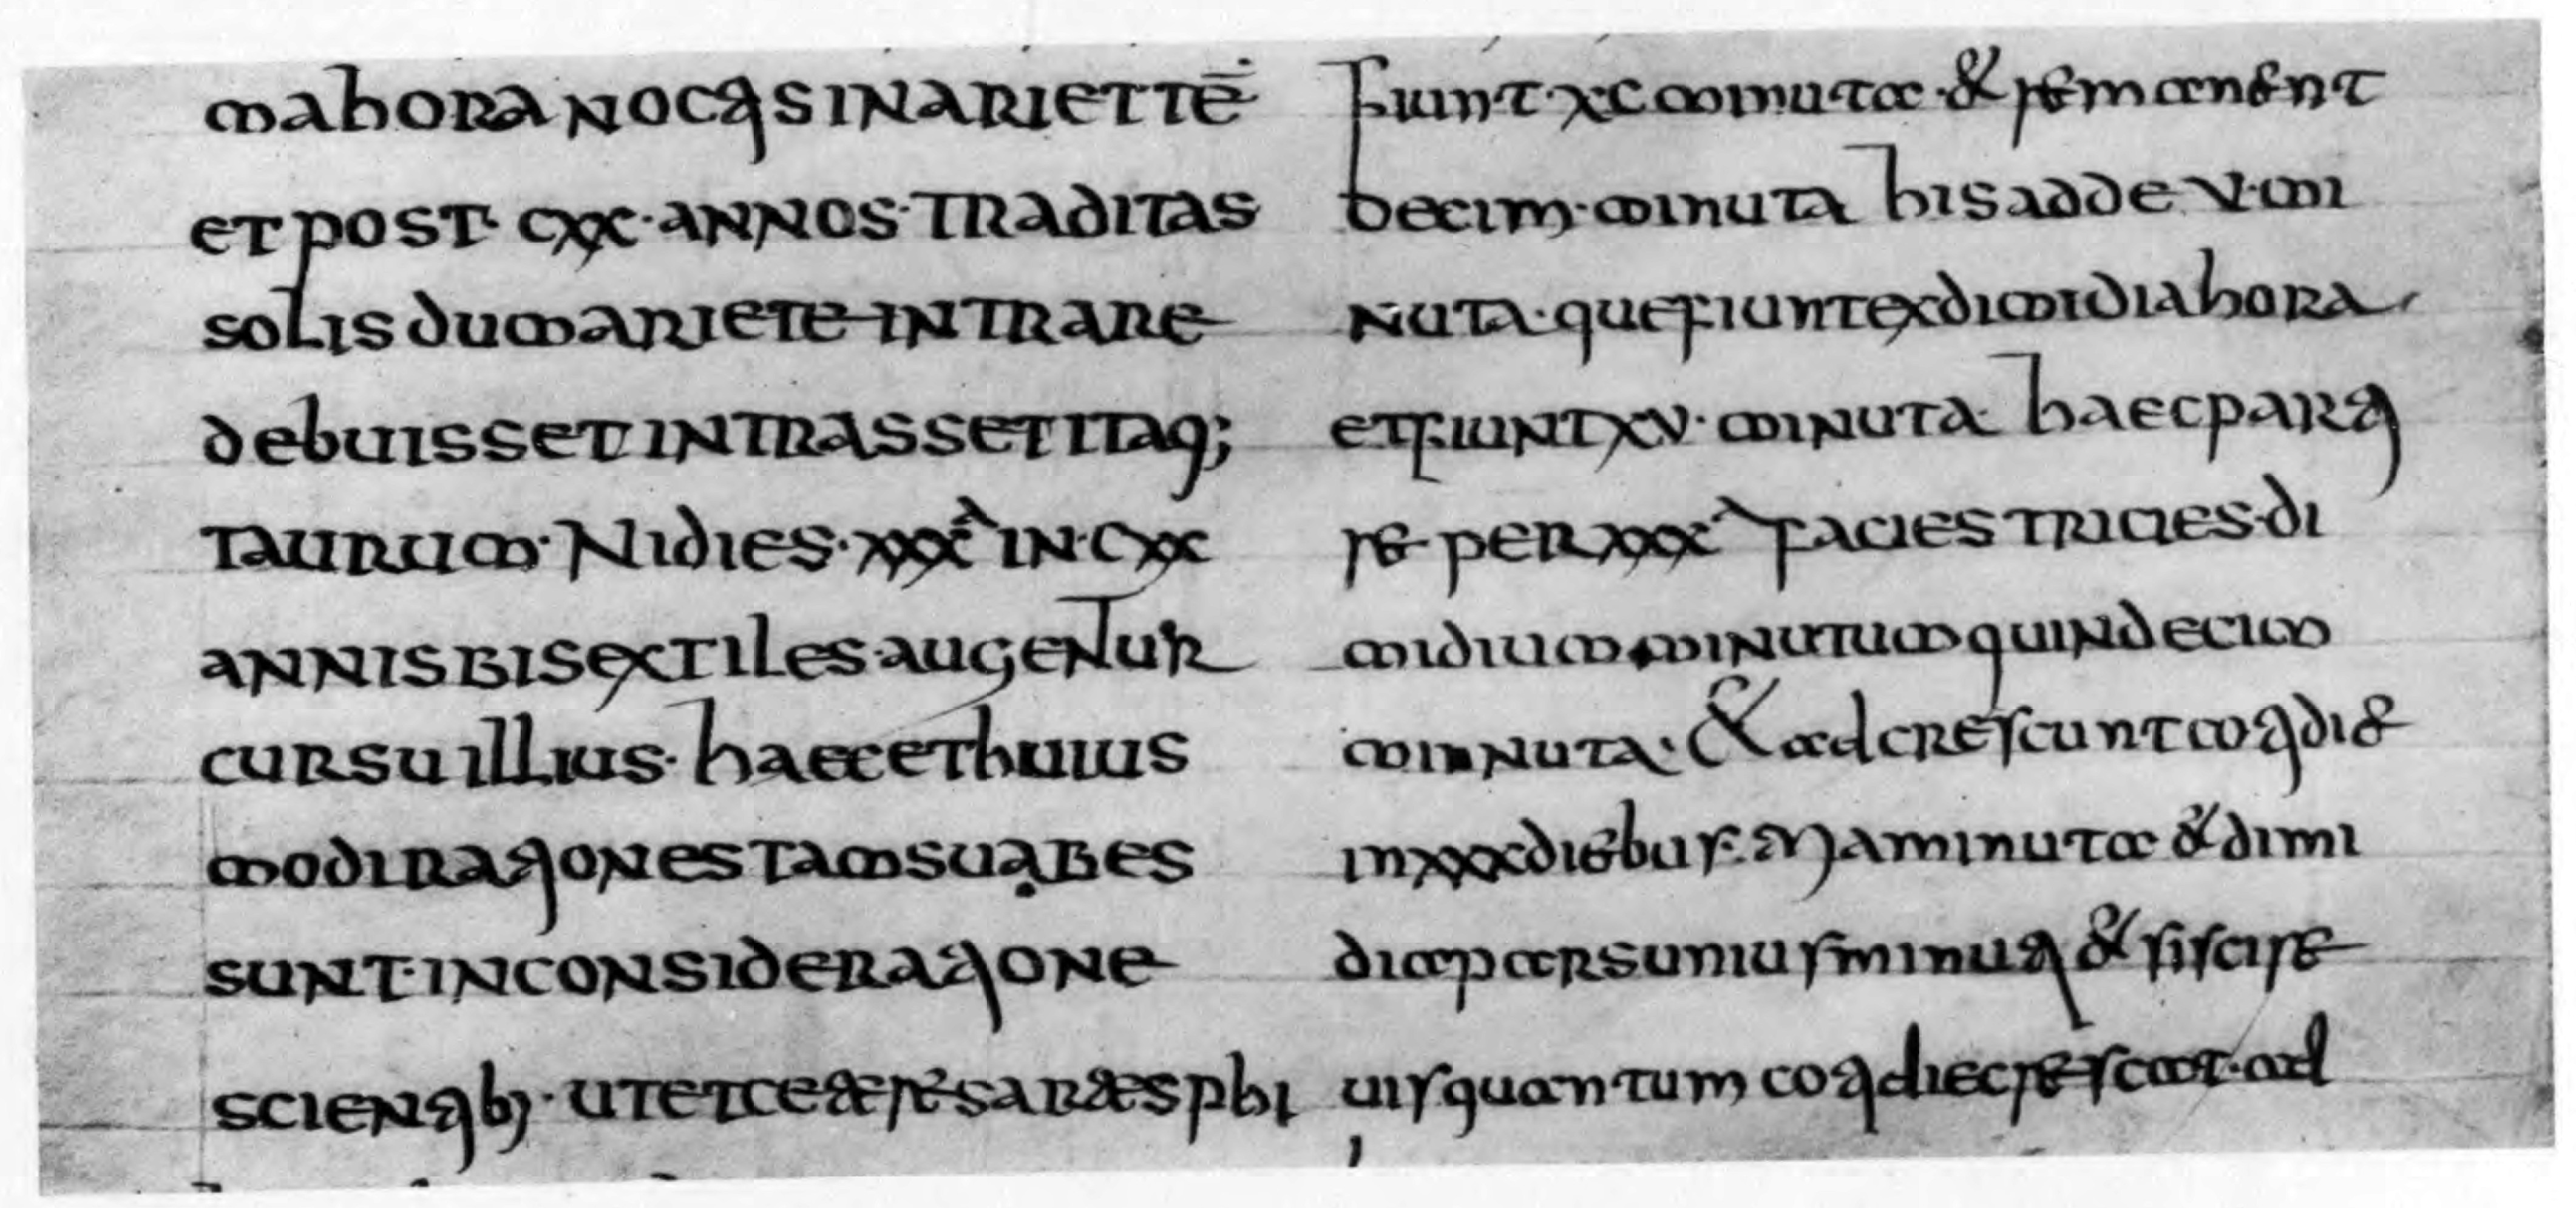 mahora noctis in ariette ̄
et post· cxx· annos· traditas
solis dum ariete intrare
debuisset intrasset itaq;
taurum· Nidies· xxx̂ in· cxx
annis bisextiles· augentur
cursu illius· haec et huius
modi rationes tam suabes
sunt· in consideratione
scientib;· ut et ceterae
fiunt· xc minuta· & remanent
decim· minuta his adde v· mi
nuta· que fiunt ex dimidia hora
et fiunt xv· minuta· haec parti
re per xxx facies tricies· di
midium minutum quindecim
minuta· & adcrescunt cotidi&
in xxx diebus· Una minuta & dimi
dia pars unius minuti & si scire
uis quantum cotdie crescat· ad